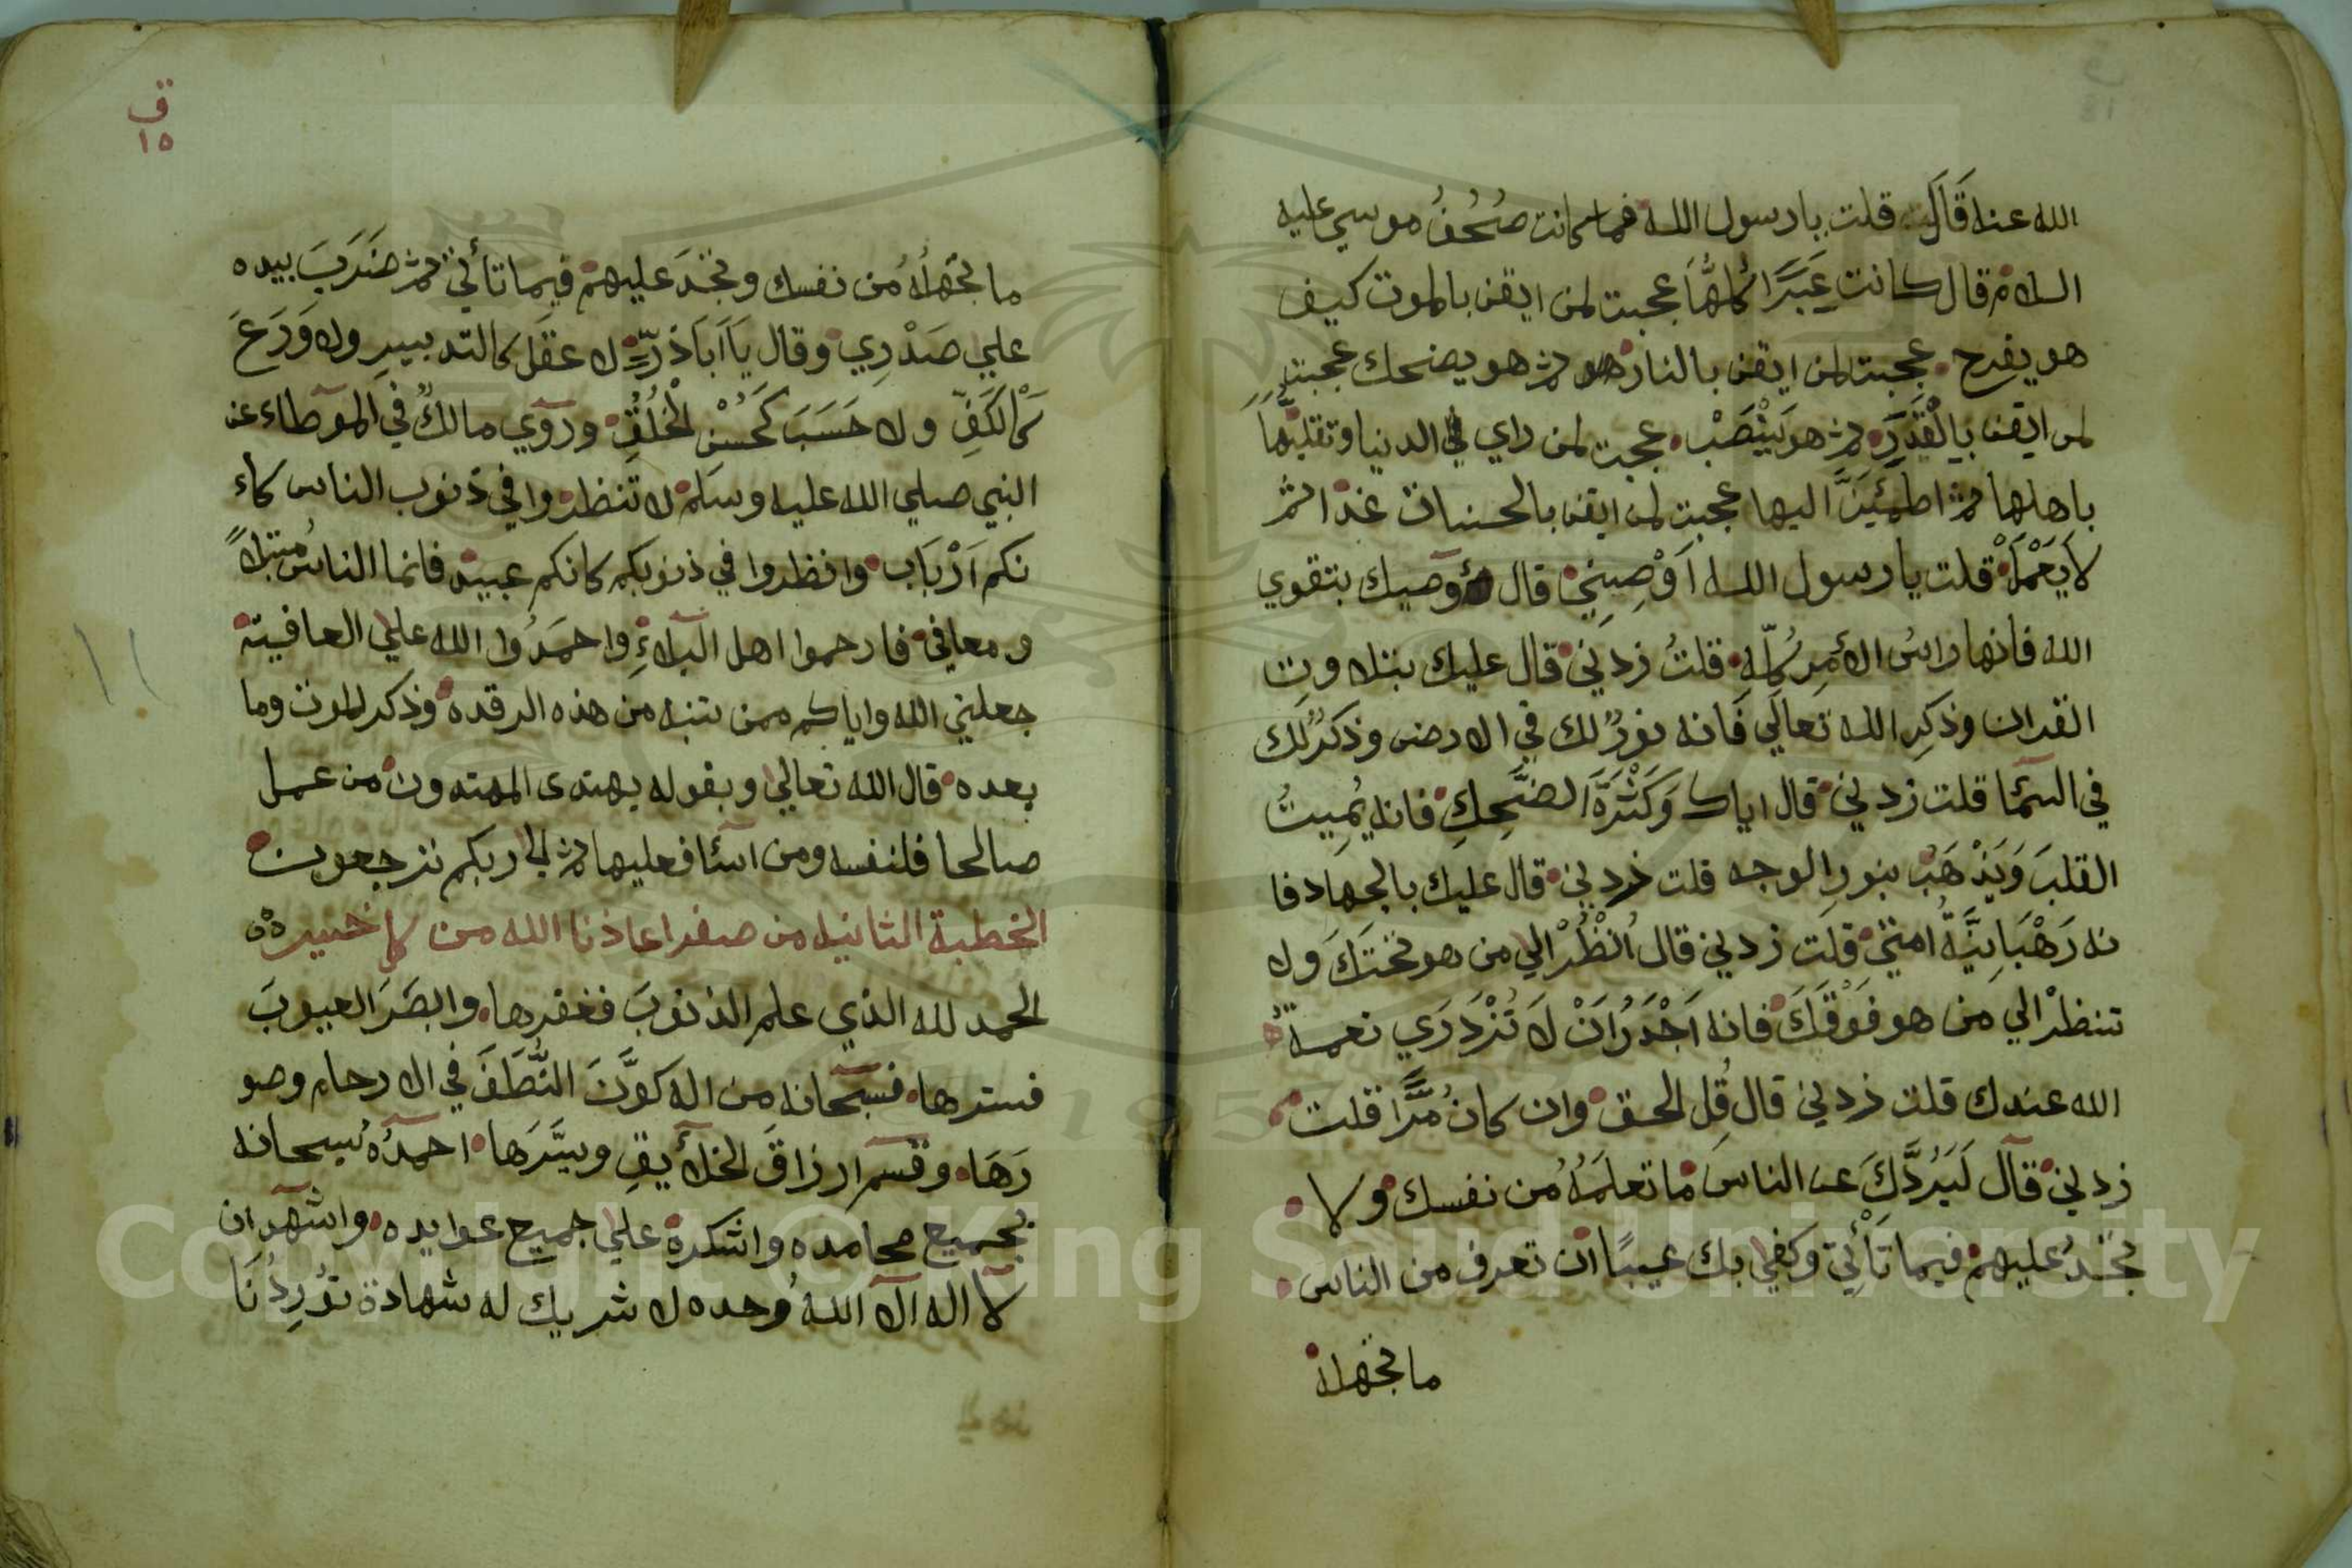 الله عنه قَالَ قلت يا رسول الله فما كانت صُحُفُ موسي عليه
السلام قال كانت عِبَرًا كُلُّهَا عجبت لمن ايقن بالموت كيف
هو يفرح عجبت لمن ايقن بالنار ثم هو يضحك عجبت
لمن ايقن بِالْقَدَرِ ثم هو يَنْصَبْ عجبت لمن راي الدنيا وتقلبَهَا
باهلها ثم اطمئَنَّ اليها عجبت لمن ايقن بالحسنات غدا ثم
لَا يَعْمَلْ قلت يا رسول الله اَوْصِينِي قال أوصيك بتقوي
الله فانها راسُ الأمرِ كُلِّهِ قلتُ زدني قال عليك بتلاوتِ
القران وذكرِ الله تعالَي فَانه نورٌ لك في الارض وذكرٌ لك
في السمآ قلت زدني قال اياك وَكَثْرَةَ الضَّحِكِ فانه يُمِيتُ
القلبَ وَيَذْهَبُ بنورِ الوجه قلت زدني قال عليك بالجهاد فا
نه رَهْبَانِيَّةُ امتي قلت زدني قال اُنْظُرْ الي من هو تحتَكَ ولا
تنظرْ الي مَن هو فَوْقَكَ فانه اَجْدَرُ اَنْ لَا تَزْدَرَي نعمة
الله عندك قلت زدني قال قُلِ الحق وان كان مُرًّا قلت
زدني قال لَيَرُدَّكَ عن الناسَ ما تعلَمُهُ من نفسك ولا
تجدُ عليهم فيما تَأْتِي وكفي بك عيبًا ان تعرف من الناس
ما تجهله
ق
١٥
ما تجهلُهُ من نفسك وتجدَ عليهم فيما تأتي ثم ضَرَبَ بيده
علي صَدْرِي وقال يَا اَبَا ذَرٍّ لا عقل كالتدبيرِ ولا وَرَعَ
كَالْكَفِّ ولا حَسَبَ كَحُسْنِ الْخُلُقِ وروَي مالكٌ في الموطاء عن
النبي صلي الله عليه وسلم لا تنظروا في ذنوب الناس كاء
نكم اَرْبَاب وانظروا في ذنوبكم كانكم عبيد فانما الناسُ مبتلاً
ومعافي فارحموا اهل البلاءِ واحمَدُوا الله علي العافية
جعلني الله واياكم ممن تنبه من هذه الرقدة وذكر الموت وما
بعده قال الله تعالي وبقوله يهتدى المهتدون من عمل
صالحا فلنفسه ومن اسآ فعليها ثم الي ربكم ترجعون
الخطبة الثانيه من صفر اعاذنا الله من كل خسر
الحمد لله الذي علم الذنوبَ فغفرها وابصَرَ العيوبَ
فسترها فسبحانه من اله كوَّنَ النُّطَفَ في الارحام وصو
رَهَا وقسم ارزاقَ الخلآيقِ ويسَّرَها احمدُهُ سبحانه
بجميع محامده واشكره علي جميع عوايده واشهد ان
لآ اله الآ اللهُ وحده لا شريك له شهادة تُورِدُنَا